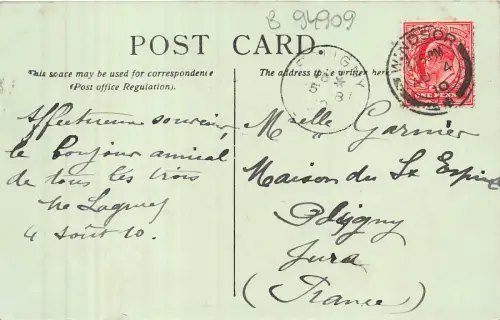 B 94909
POST CARD.
This space may be used for correspondence
(Post office Regulation).
The address to be written here
WINDSOR
PM
4
10
ONE PENNY
POLIGNY
5 8
Affectueux souvenir,
le bonjour amical
de tous les trois
4 Août 10.
Melle Garnier
Maison du St Esprit
Poligny
Jura
(France)